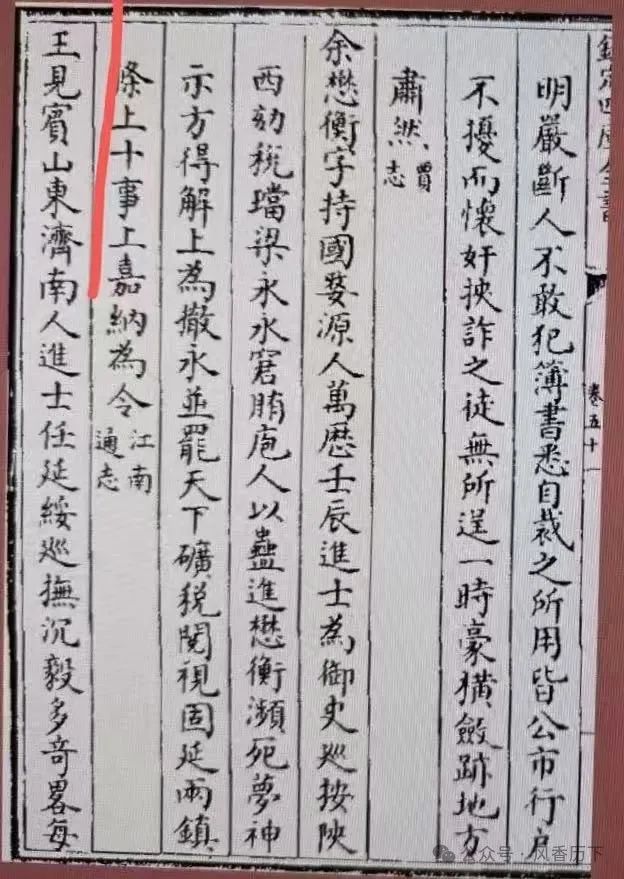 欽定四庫全書
卷五十一
明嚴斷人不敢犯簿書悉自裁之所用皆公市行户
不擾而懷奸挾詐之徒無所逞一時豪猾斂跡地方
肅然賈志
余懋衡字持國婺源人萬歷壬辰進士為御史巡按陜
西劾稅璫梁永永窘賄庖人以蠱進懋衡瀕死夢神
示方得解上為撤永並罷天下礦稅閱視固延兩鎮
條上十事上嘉納為令江南通志
王見賓山東濟南人進士任延綏巡撫沉毅多奇畧每
公众号·风香历下